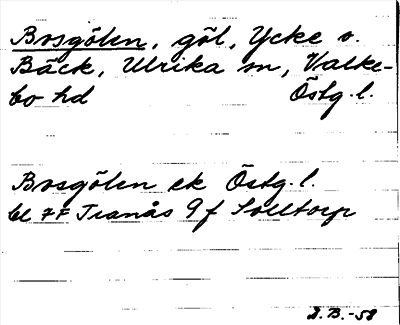 Bosgölen, göl, Ycke o.
Bäck, Ulrika sn, Valke-
bo hd Östg. l.
Bosgölen ek Östg. l.
bl 7F Tranås 9f Solltorp
D.B.-58